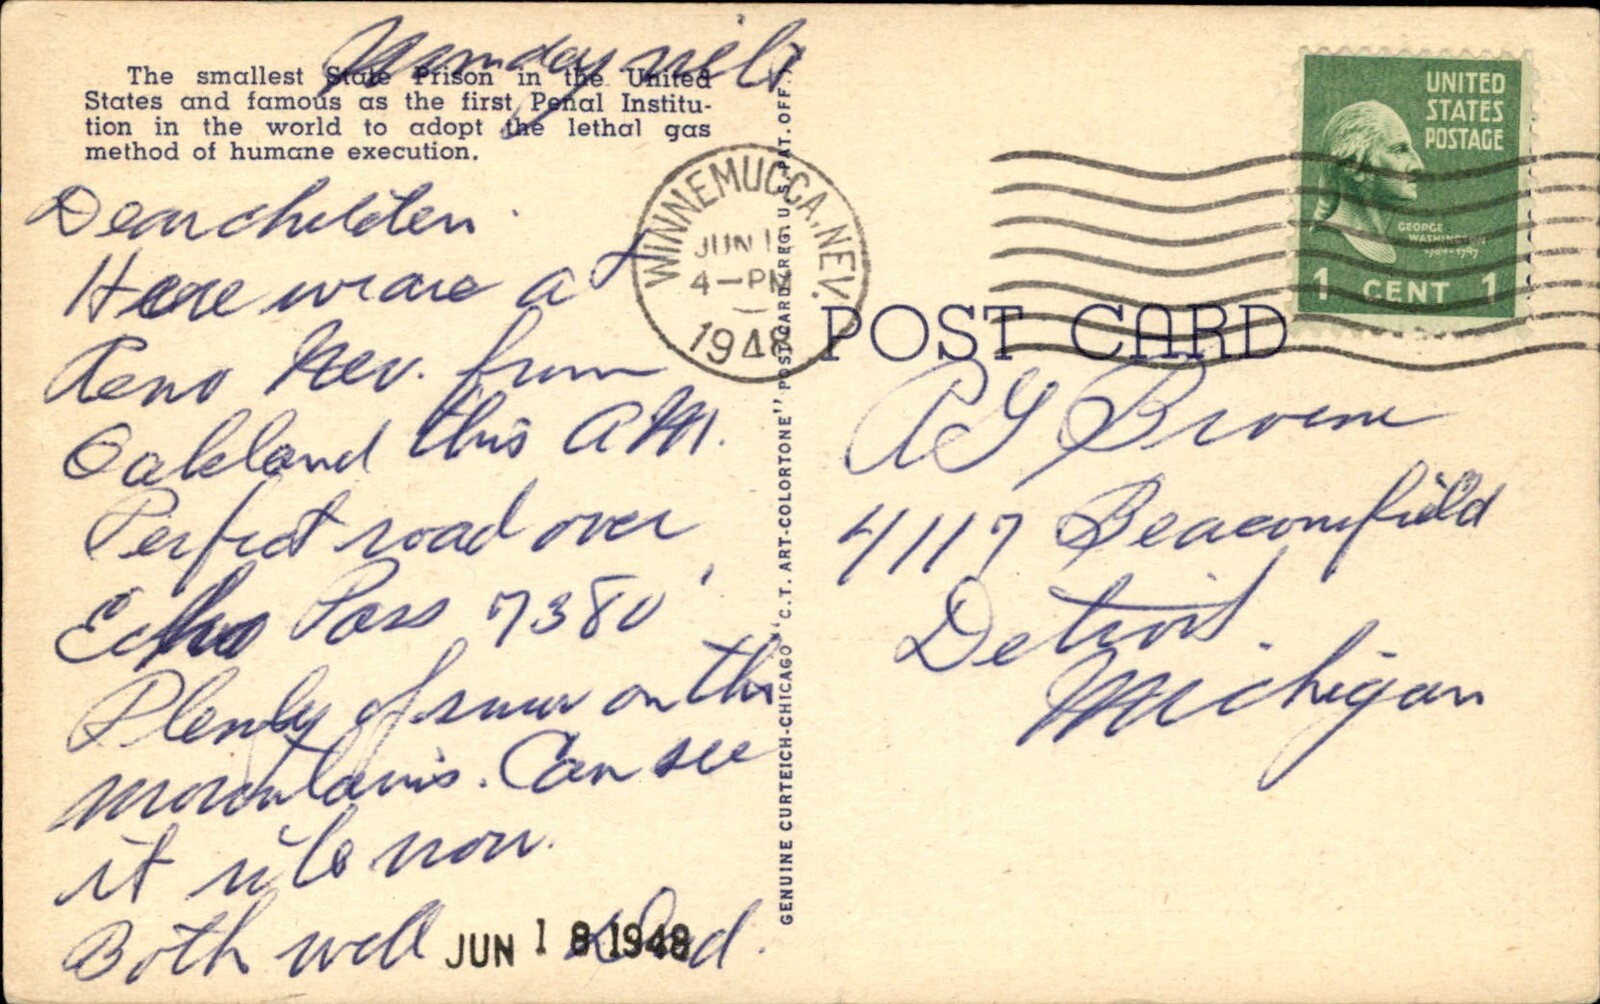 The smallest State Prison in the United
States and famous as the first Penal Institu-
tion in the world to adopt the lethal gas
method of humane execution.
Dear children.
Here we are at
Reno Nev. from
Oakland this A M.
Perfect road over
Echo Pass 7380'
Plenty of snow on the
mountains. Can see
it now.
Both well Dad.
JUN 18 1948
WINNEMUCCA, NEV.
JUN
4-PM
1948
GENUINE CURTEICH-CHICAGO "C.T. ART-COLORTONE" POST CARD (REG. U.S. PAT. OFF.)
UNITED
STATES
POSTAGE
GEORGE
WASHINGTON
1 CENT 1
POST CARD
A G Brown
4117 Beaconsfield
Detroit.
Michigan